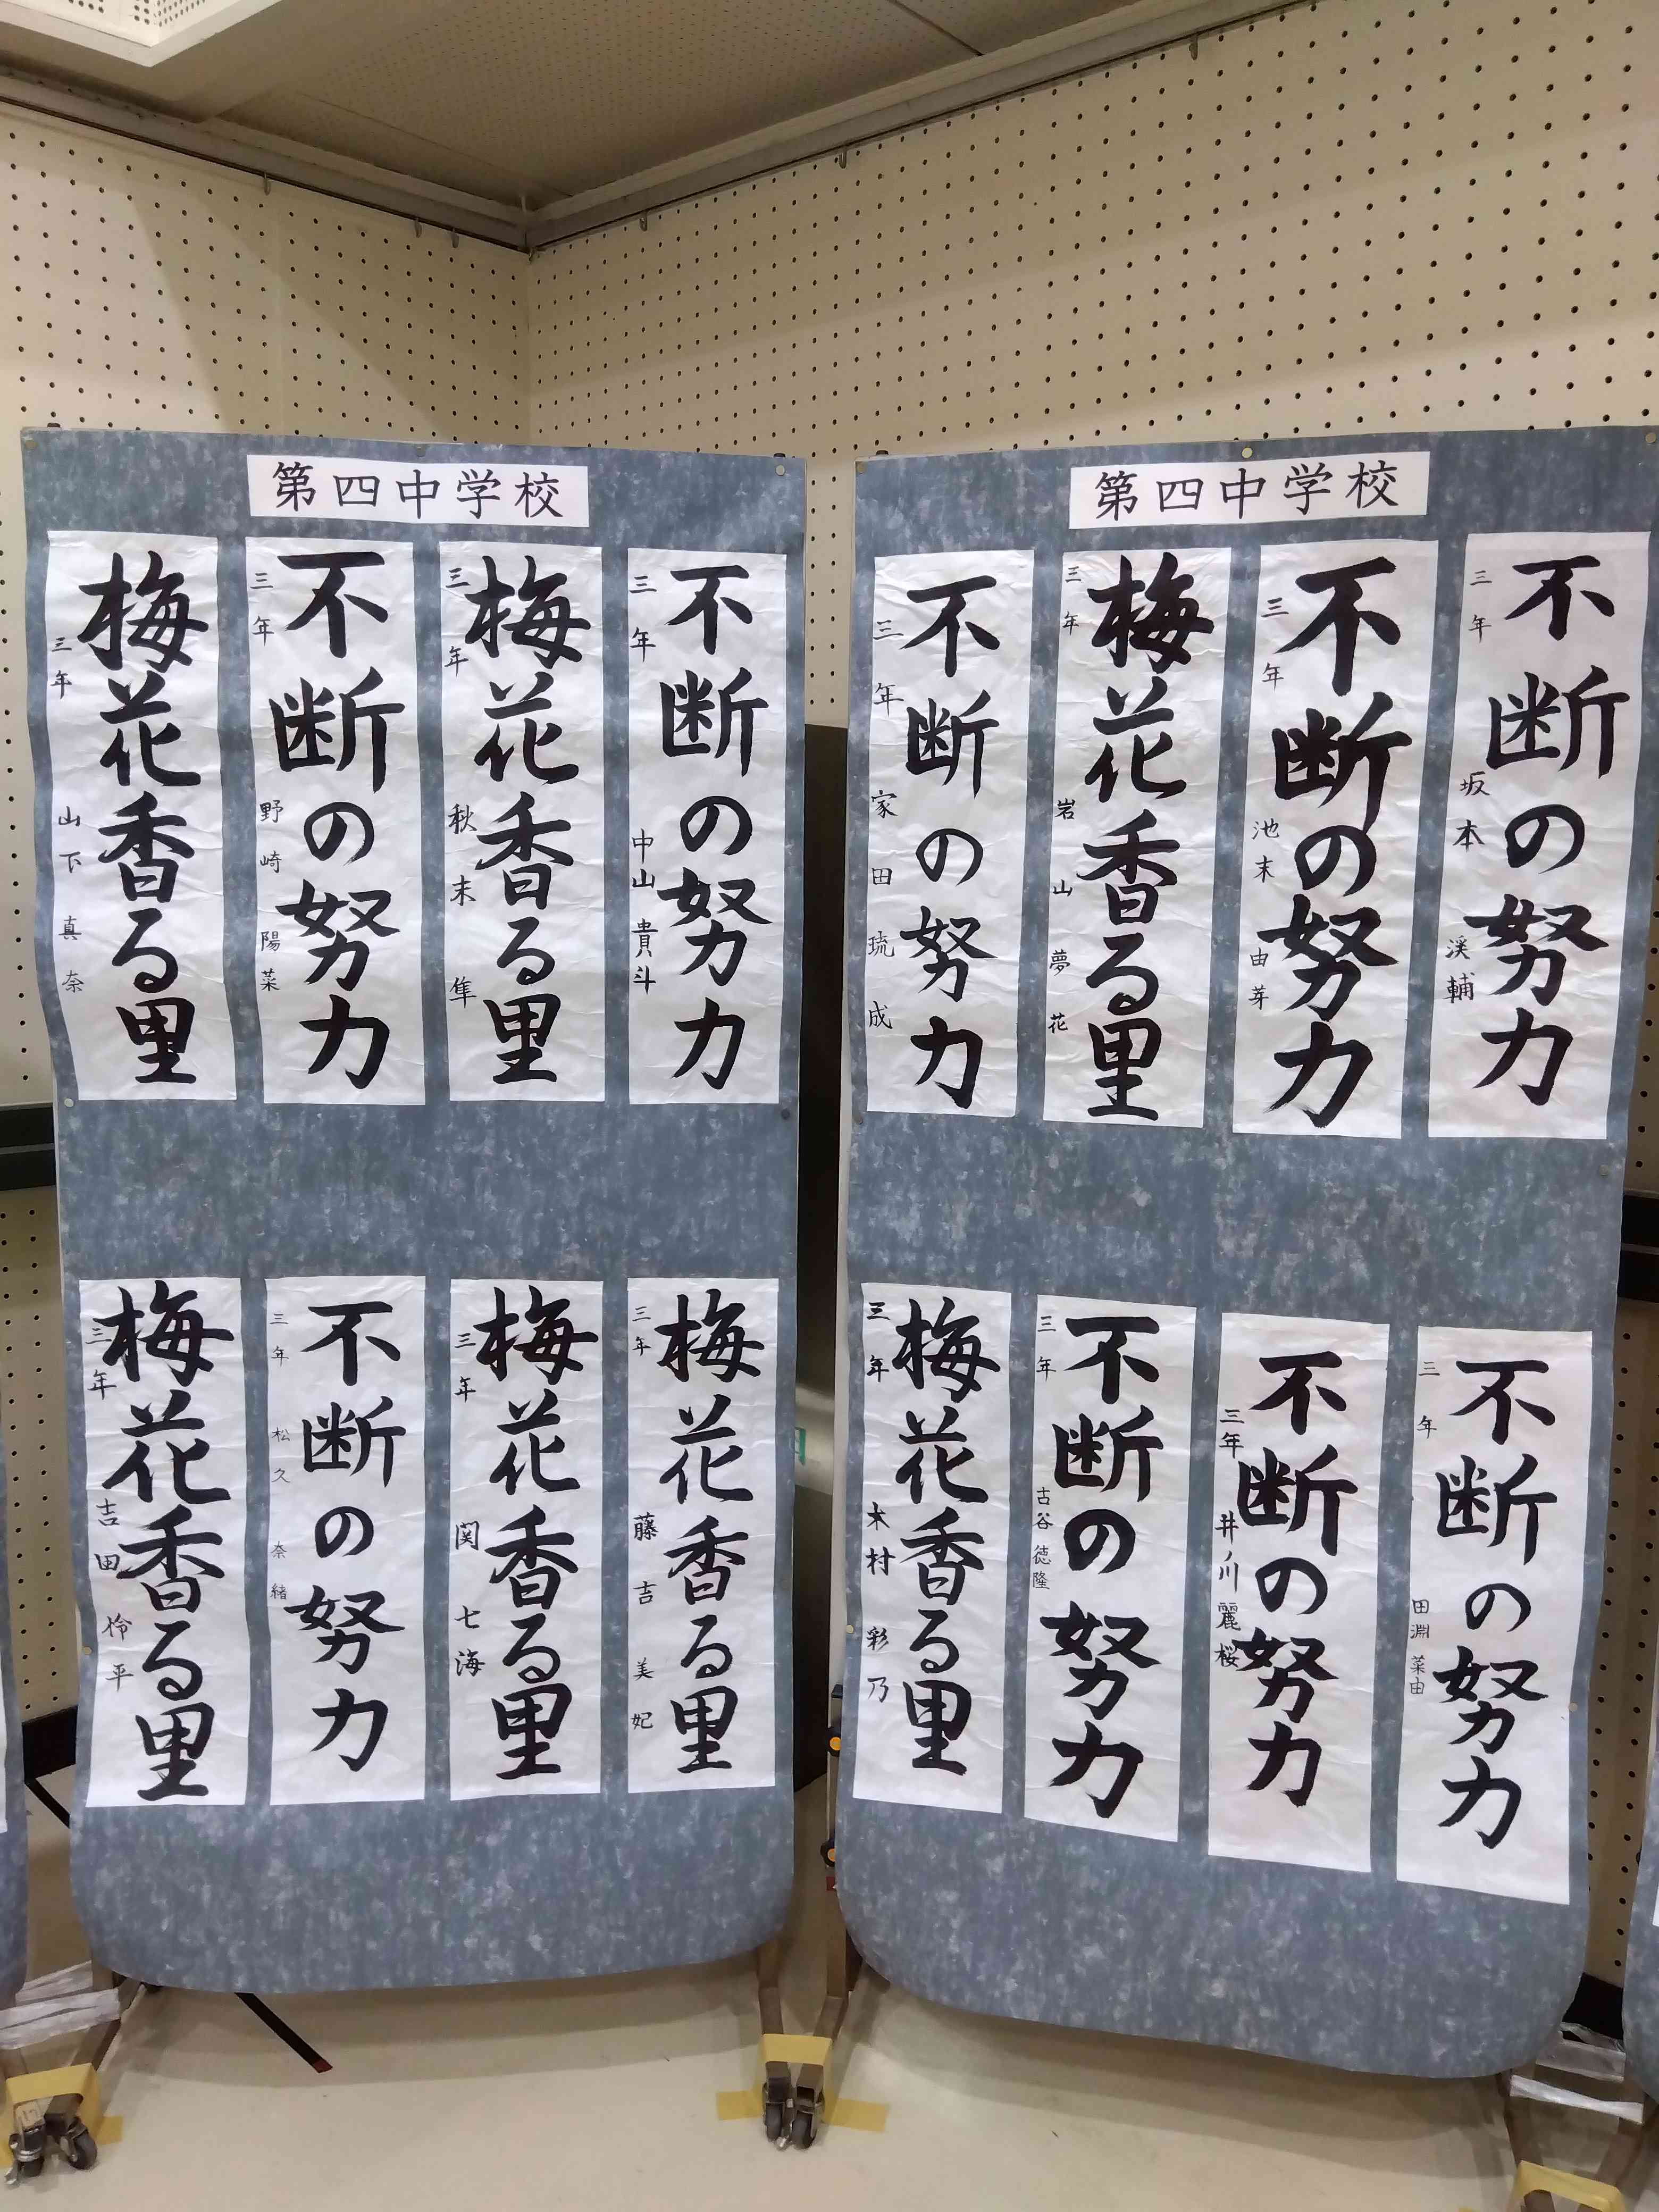 第四中学校
梅花香る里
三年 山下真奈
不断の努力
三年 野崎陽菜
梅花香る里
三年 秋末隼
不断の努力
三年 中山貴斗
梅花香る里
三年 吉田伶平
不断の努力
三年 松久奈緒
梅花香る里
三年 関七海
梅花香る里
三年 藤吉美妃
第四中学校
不断の努力
三年 家田琉成
梅花香る里
三年 岩山夢花
不断の努力
三年 池末由芽
不断の努力
三年 坂本渓輔
梅花香る里
三年 木村彩乃
不断の努力
三年 古谷徳隆
不断の努力
三年 井川麗桜
不断の努力
三年 田淵菜由